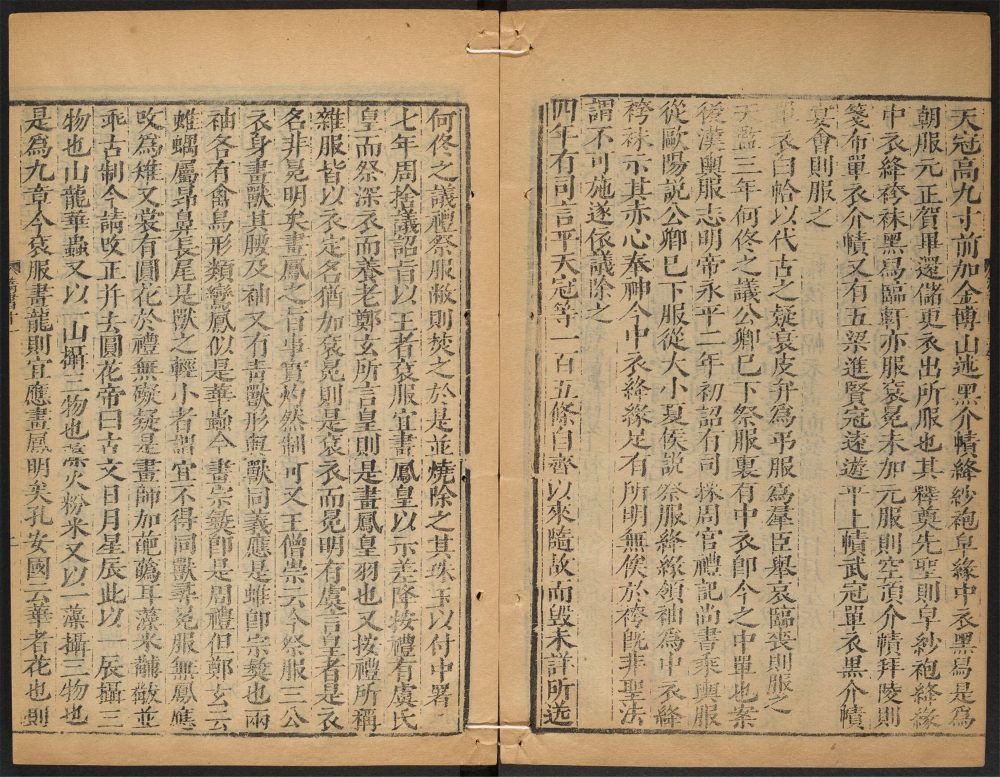 天冠高九寸前加金博山述黑介幘絳紗袍皁緣中衣黑舄是為
朝服元正賀畢還儲更衣出所服也其釋奠先聖則皁紗袍絳緣
中衣絳袴袜黑舄臨軒亦服袞冕未加元服則空頂介幘拜陵則
箋布單衣介幘又有五梁進賢冠遠遊平上幘武冠單衣黑介幘
宴會則服之
單衣白帢以代古之疑衰皮弁為弔服為羣臣舉哀臨喪則服之
天監三年何佟之議公卿已下祭服裏有中衣卽今之中單也案
後漢輿服志明帝永平二年初詔有司採周官禮記尚書乘輿服
從歐陽説公卿已下服從大小夏侯説祭服絳緣領袖為中衣絳
袴袜示其赤心奉神今中衣絳緣足有所明無俟於袴旣非聖法
謂不可施遂依議除之
四年有司言平天冠等一百五條自齊以來隨故而毀未詳所送
何佟之議禮祭服敝則焚之於是並燒除之其珠玉以付中署
七年周捨議詔旨以王者袞服宜畫鳳皇以示差降按禮有虞氏
皇而祭深衣而養老鄭玄所言皇則是畫鳳皇羽也又按禮所稱
雜服皆以衣定名猶加袞冕則是袞衣而冕明有虞言皇者是衣
名非冕明矣畫鳳之旨事實灼然制可又王僧崇云今祭服三公
衣身畫獸其腰及袖又有青獸形與獸同義應是蜼卽宗彝也兩
袖各有禽鳥形類鸞鳳似是華蟲今畫宗彝卽是周禮但鄭玄云
蜼蝟屬昻鼻長尾是獸之輕小者謂宜不得同獸尋冕服無鳳應
改為雉又裳有圓花於禮無礙疑是畫師加葩蘤耳藻米黼黻並
乖古制今請改正并去圓花帝曰古文日月星辰此以一辰攝三
物也山龍華蟲又以一山攝三物也藻火粉米又以一藻攝三物也
是為九章今袞服畫龍則宜應畫鳳明矣孔安國云華者花也則